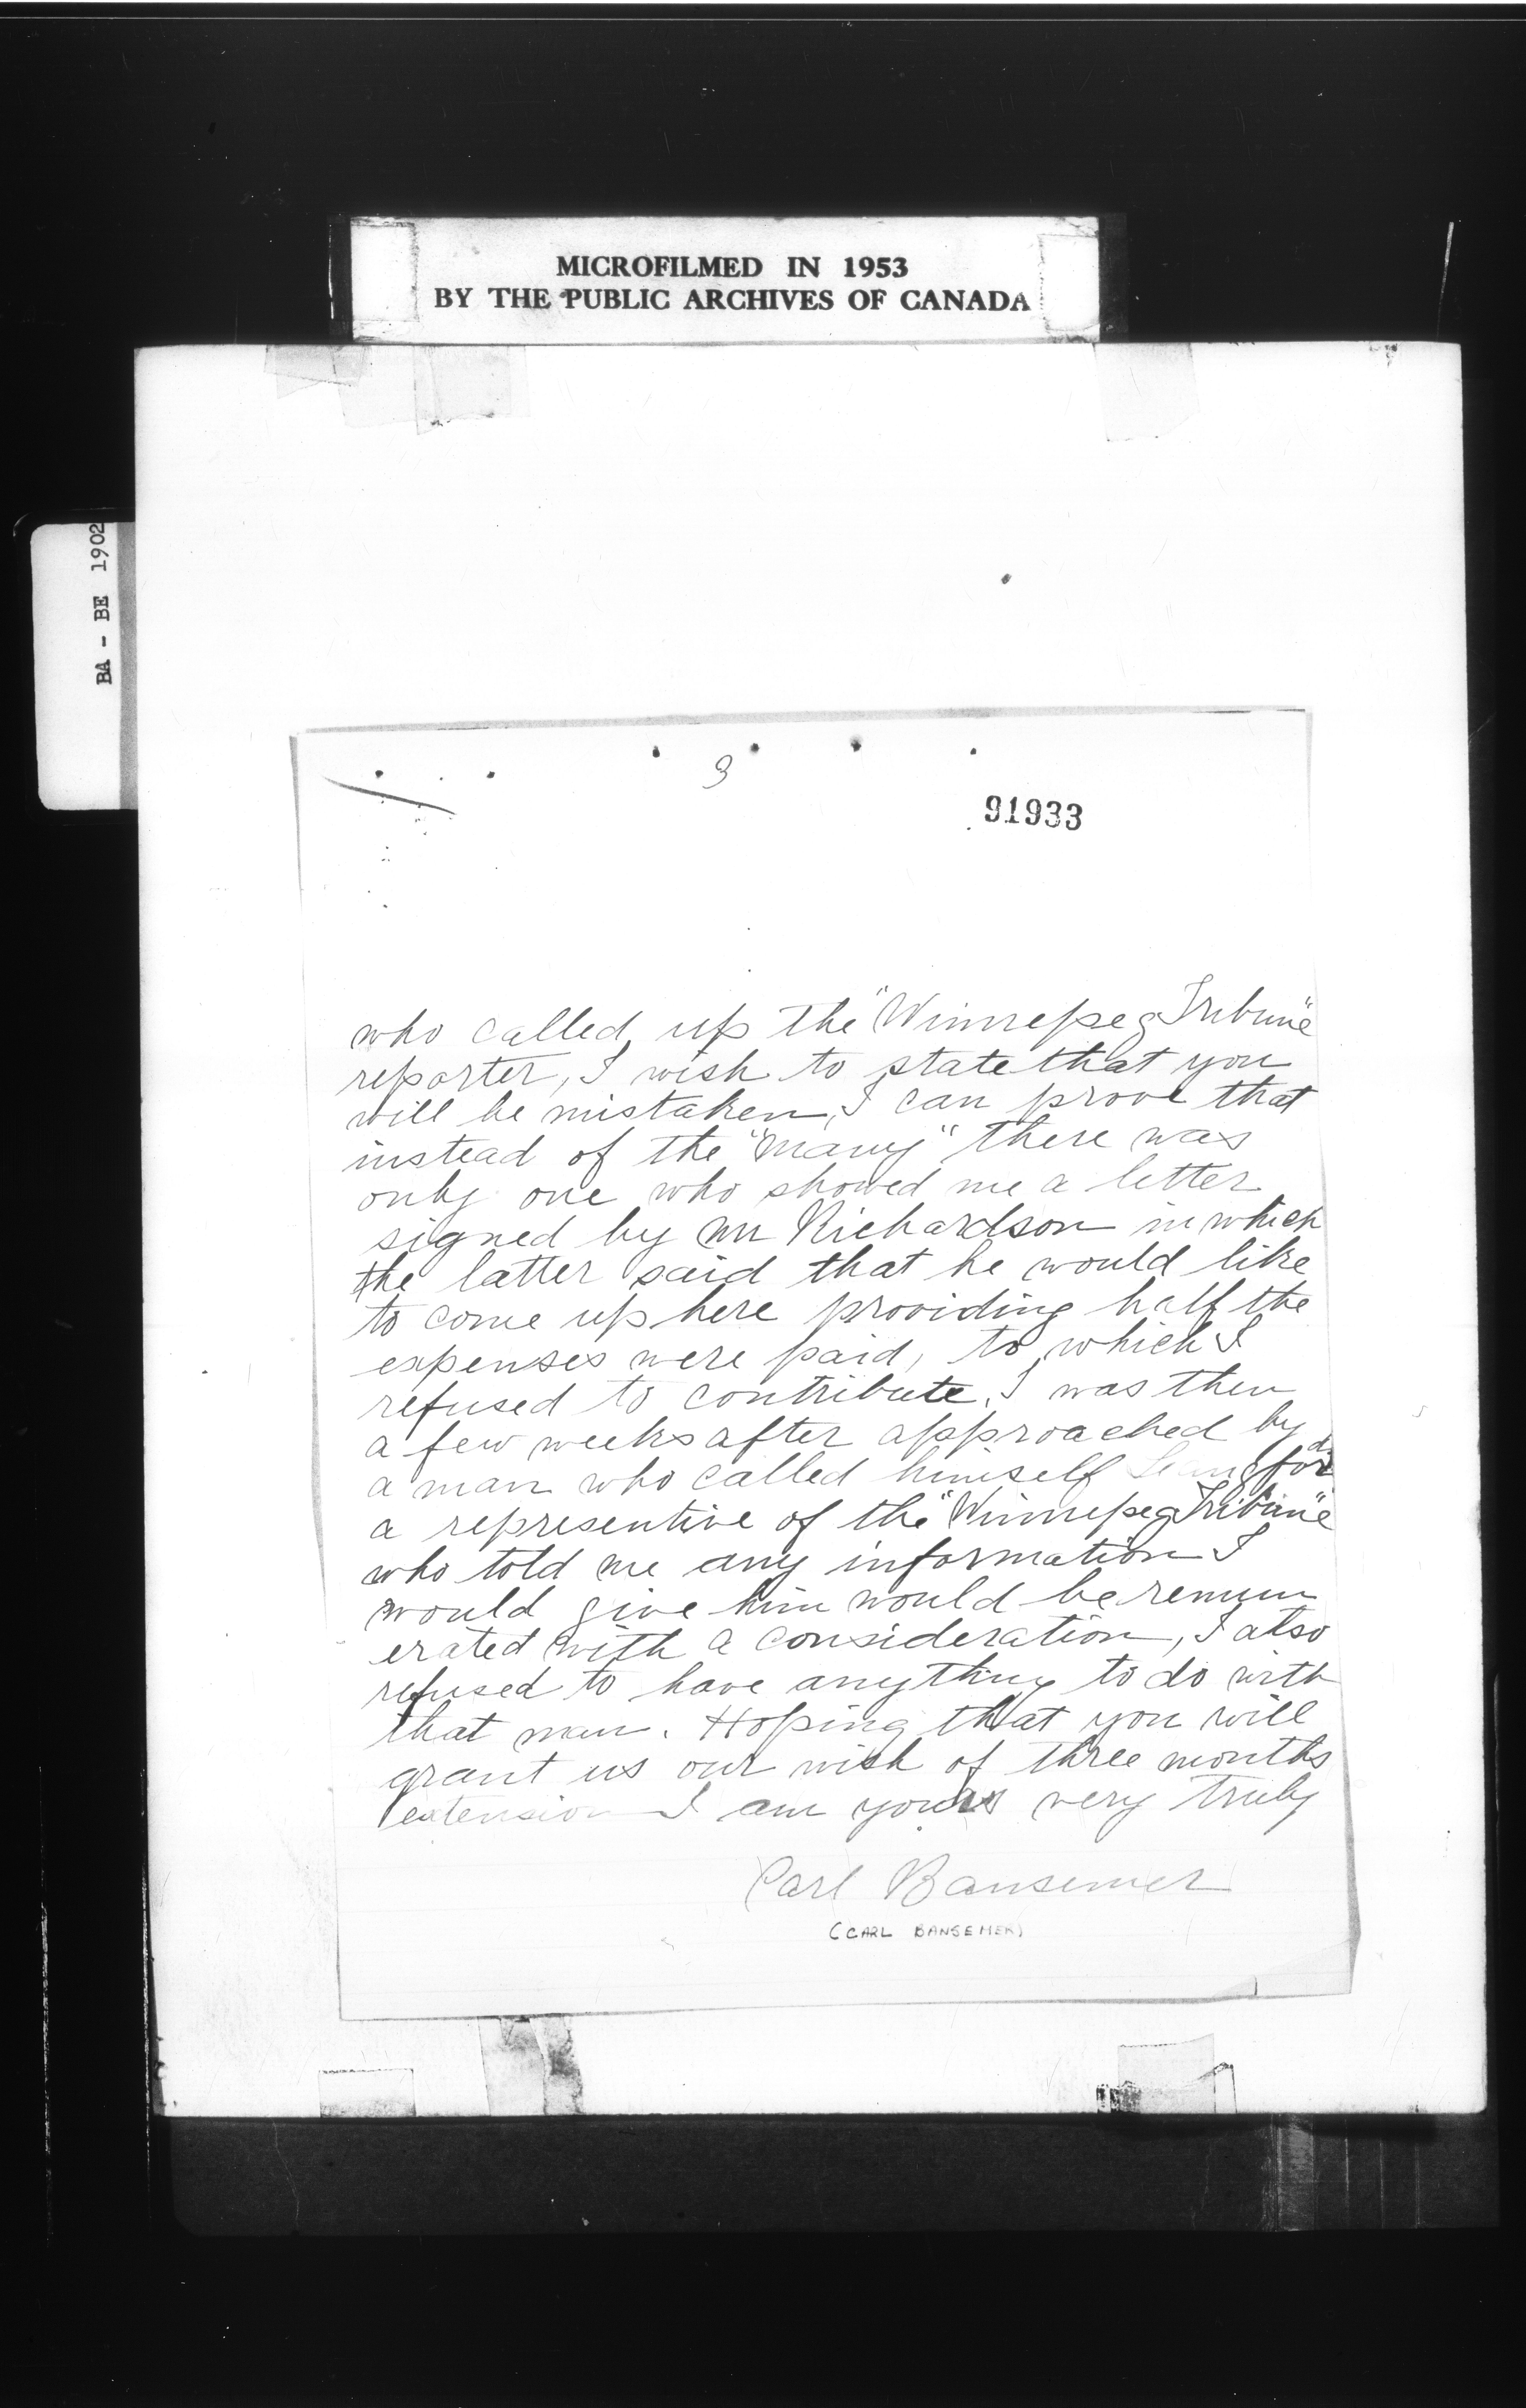 MICROFILMED IN 1953
BY THE PUBLIC ARCHIVES OF CANADA
BA - BE 1902
3
91933
who called up the "Winnepeg Tribune"
reporter, I wish to state that you
will be mistaken, I can prove that
instead of the "many" there was
only one who showed me a letter
signed by Mr Richardson in which
the latter said that he would like
to come up here providing half the
expenses were paid, to which I
refused to contribute. I was then
a few weeks after approached by
a man who called himself
a representive of the "Winnepeg Tribune"
who told me any information I
would give him would be remun
erated with a consideration, I also
refused to have anything to do with
that man. Hoping that you will
grant us our wish of three months
extension I am yours very truly
Carl Bansemer
(CARL BANSEMER)